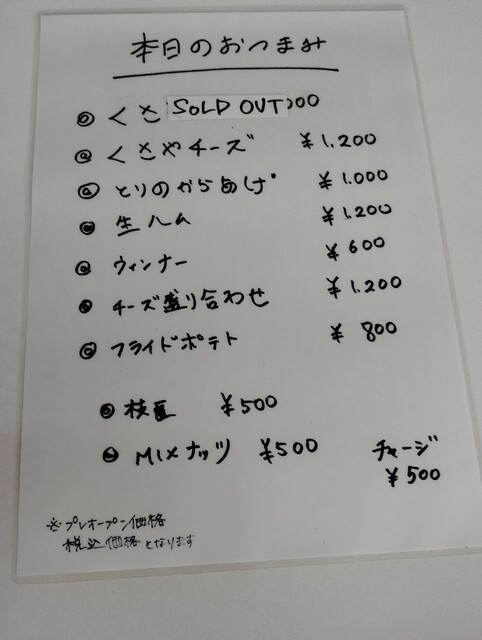 本日のおつまみ
◎ くさ SOLD OUT 00
◎ くさやチーズ ¥1,200
◎ とりのからあげ ¥1.000
● 生ハム ¥1.200
◎ ウィンナー ¥600
● チーズ盛り合わせ ¥1.200
◎ フライドポテト ¥800
◎ 枝豆 ¥500
● MIXナッツ ¥500
チャージ
¥500
※プレオープン価格
税込価格となります